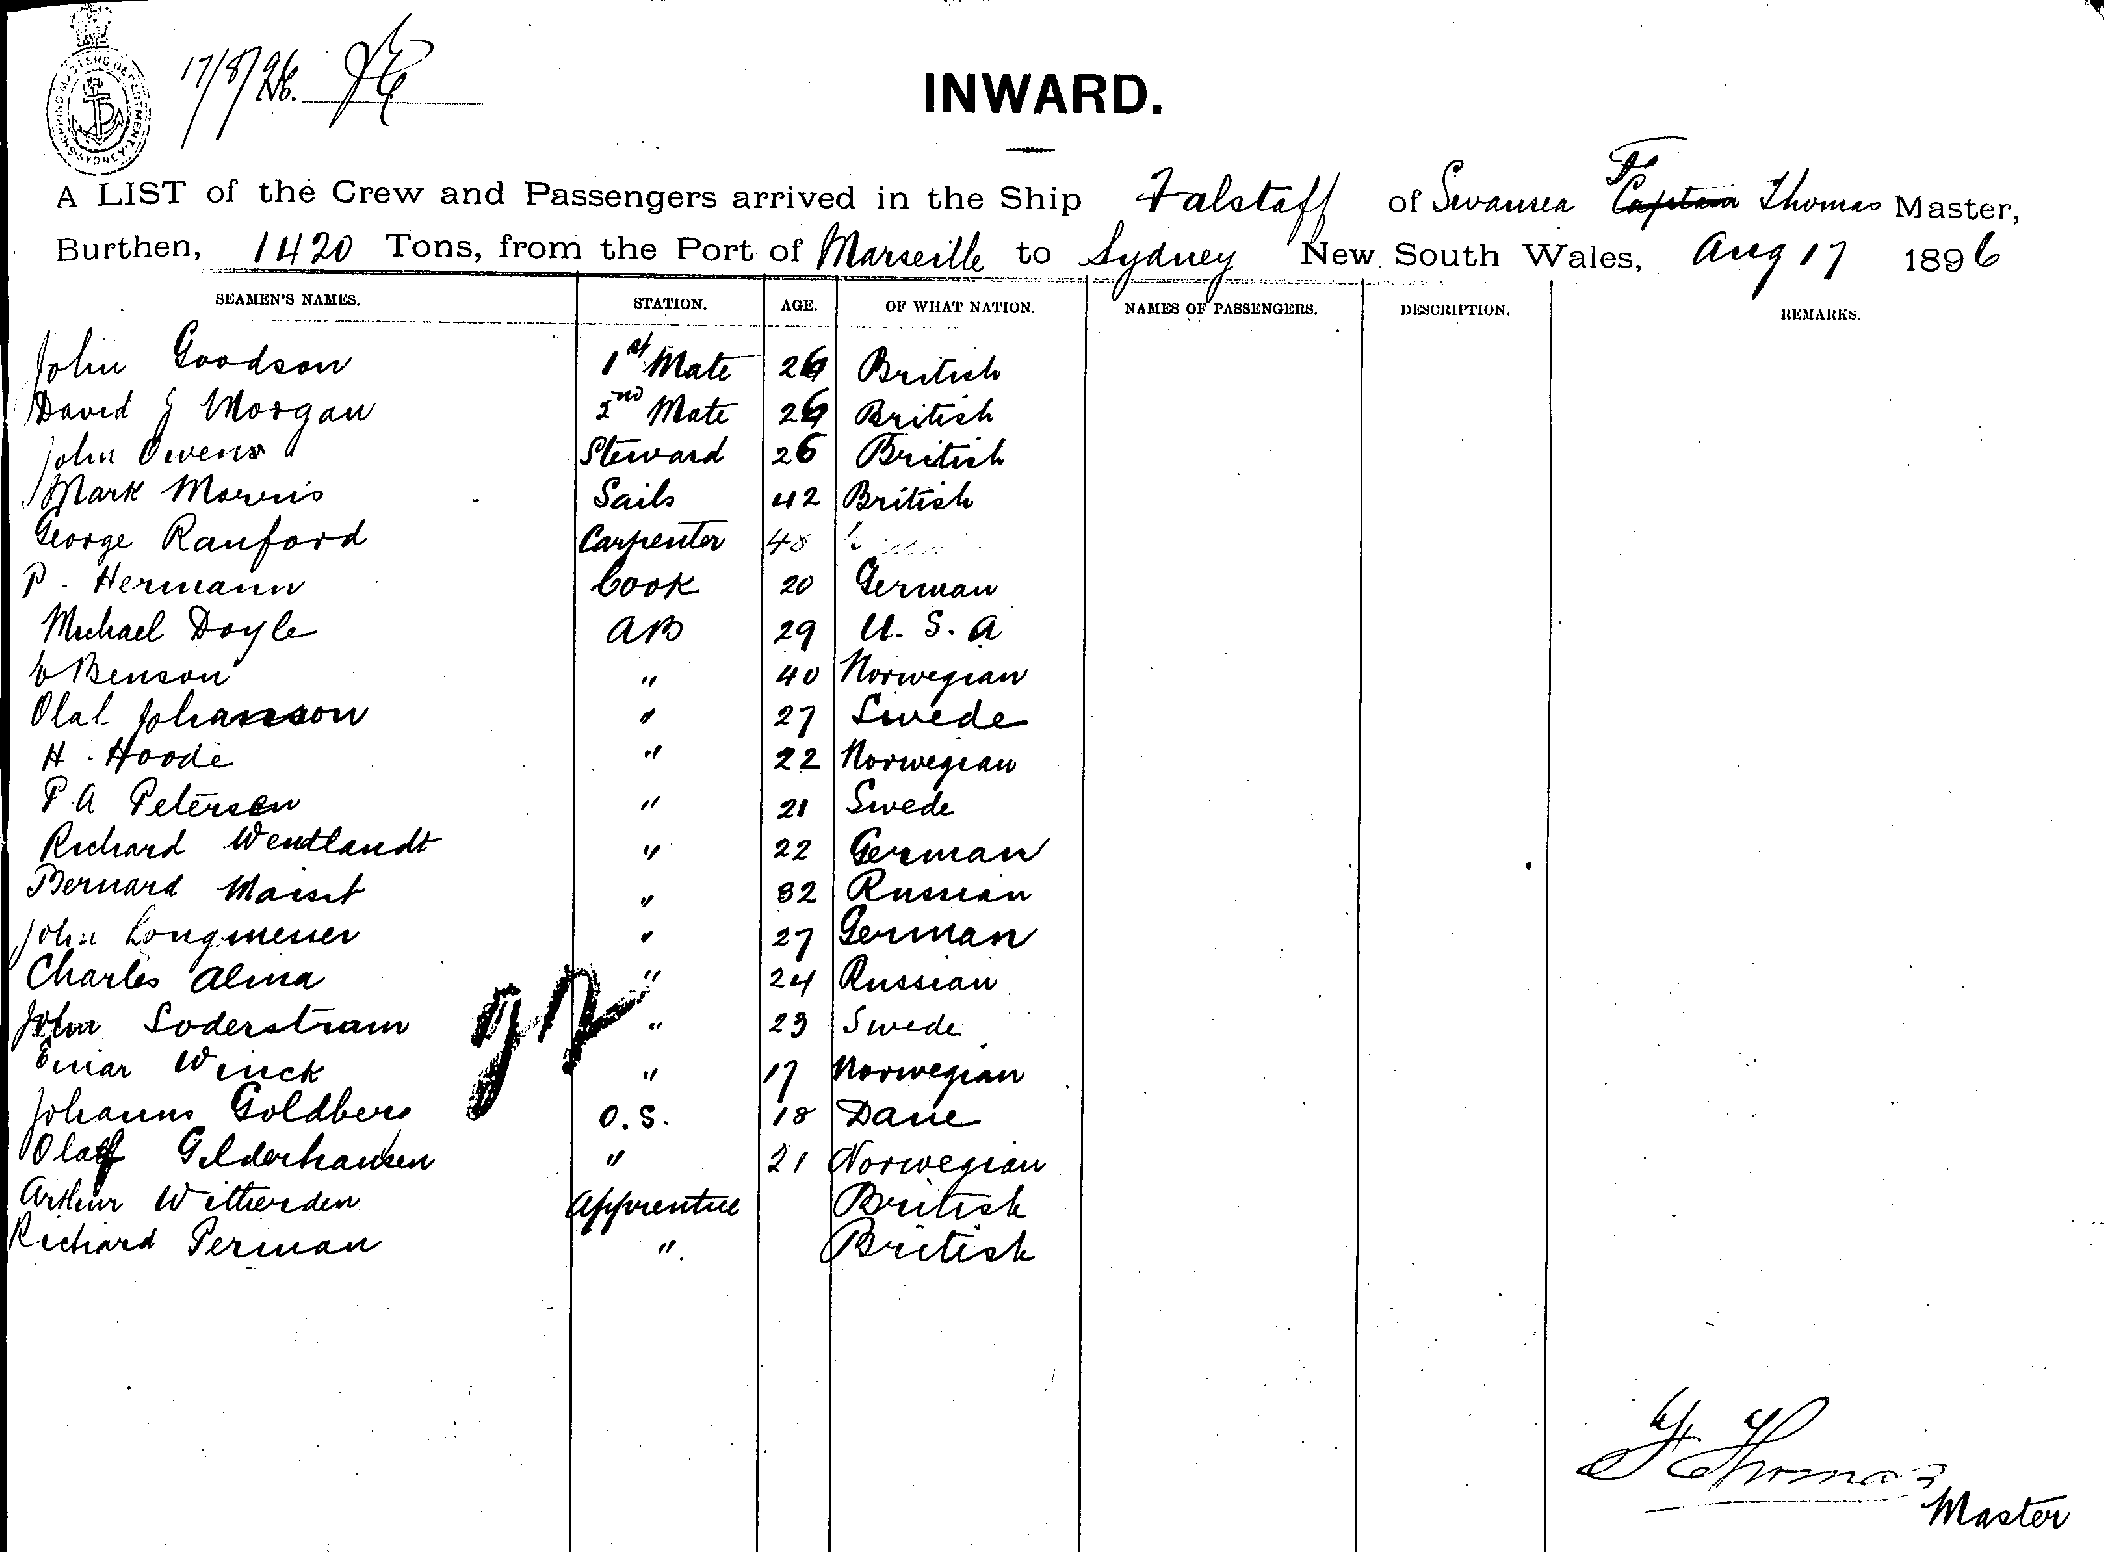 SHIPPING MASTERS DEPARTMENT SYDNEY
17/8/96.
INWARD.
A LIST of the Crew and Passengers arrived in the Ship Falstaff of Swansea F Captain Thomas Master,
Burthen, 1420 Tons, from the Port of Marseille to Sydney New South Wales, Aug 17 1896
SEAMEN'S NAMES. STATION. AGE. OF WHAT NATION. NAMES OF PASSENGERS. DESCRIPTION. REMARKS.
John Goodson 1st Mate 26 British
David J Morgan 2nd Mate 26 British
John Owens Steward 26 British
Mark Morris Sails 42 British
George Ranford Carpenter 48
P. Hermann Cook 20 German
Michael Doyle AB 29 U.S.A
Benson " 40 Norwegian
Olal Johanson " 27 Swede
H. Hoode " 22 Norwegian
P A Petersen " 21 Swede
Richard Wendtlandt " 22 German
Bernard Maisit " 32 Russian
John Longmeuer " 27 German
Charles Alma " 24 Russian
John Soderstram " 23 Swede
Einar Winck " 17 Norwegian
Johanns Goldberg O.S. 18 Dane
Olaf Gilderhausen " 21 Norwegian
Arthur Witherden Apprentice British
Richard Perman " British
F Thomas
Master